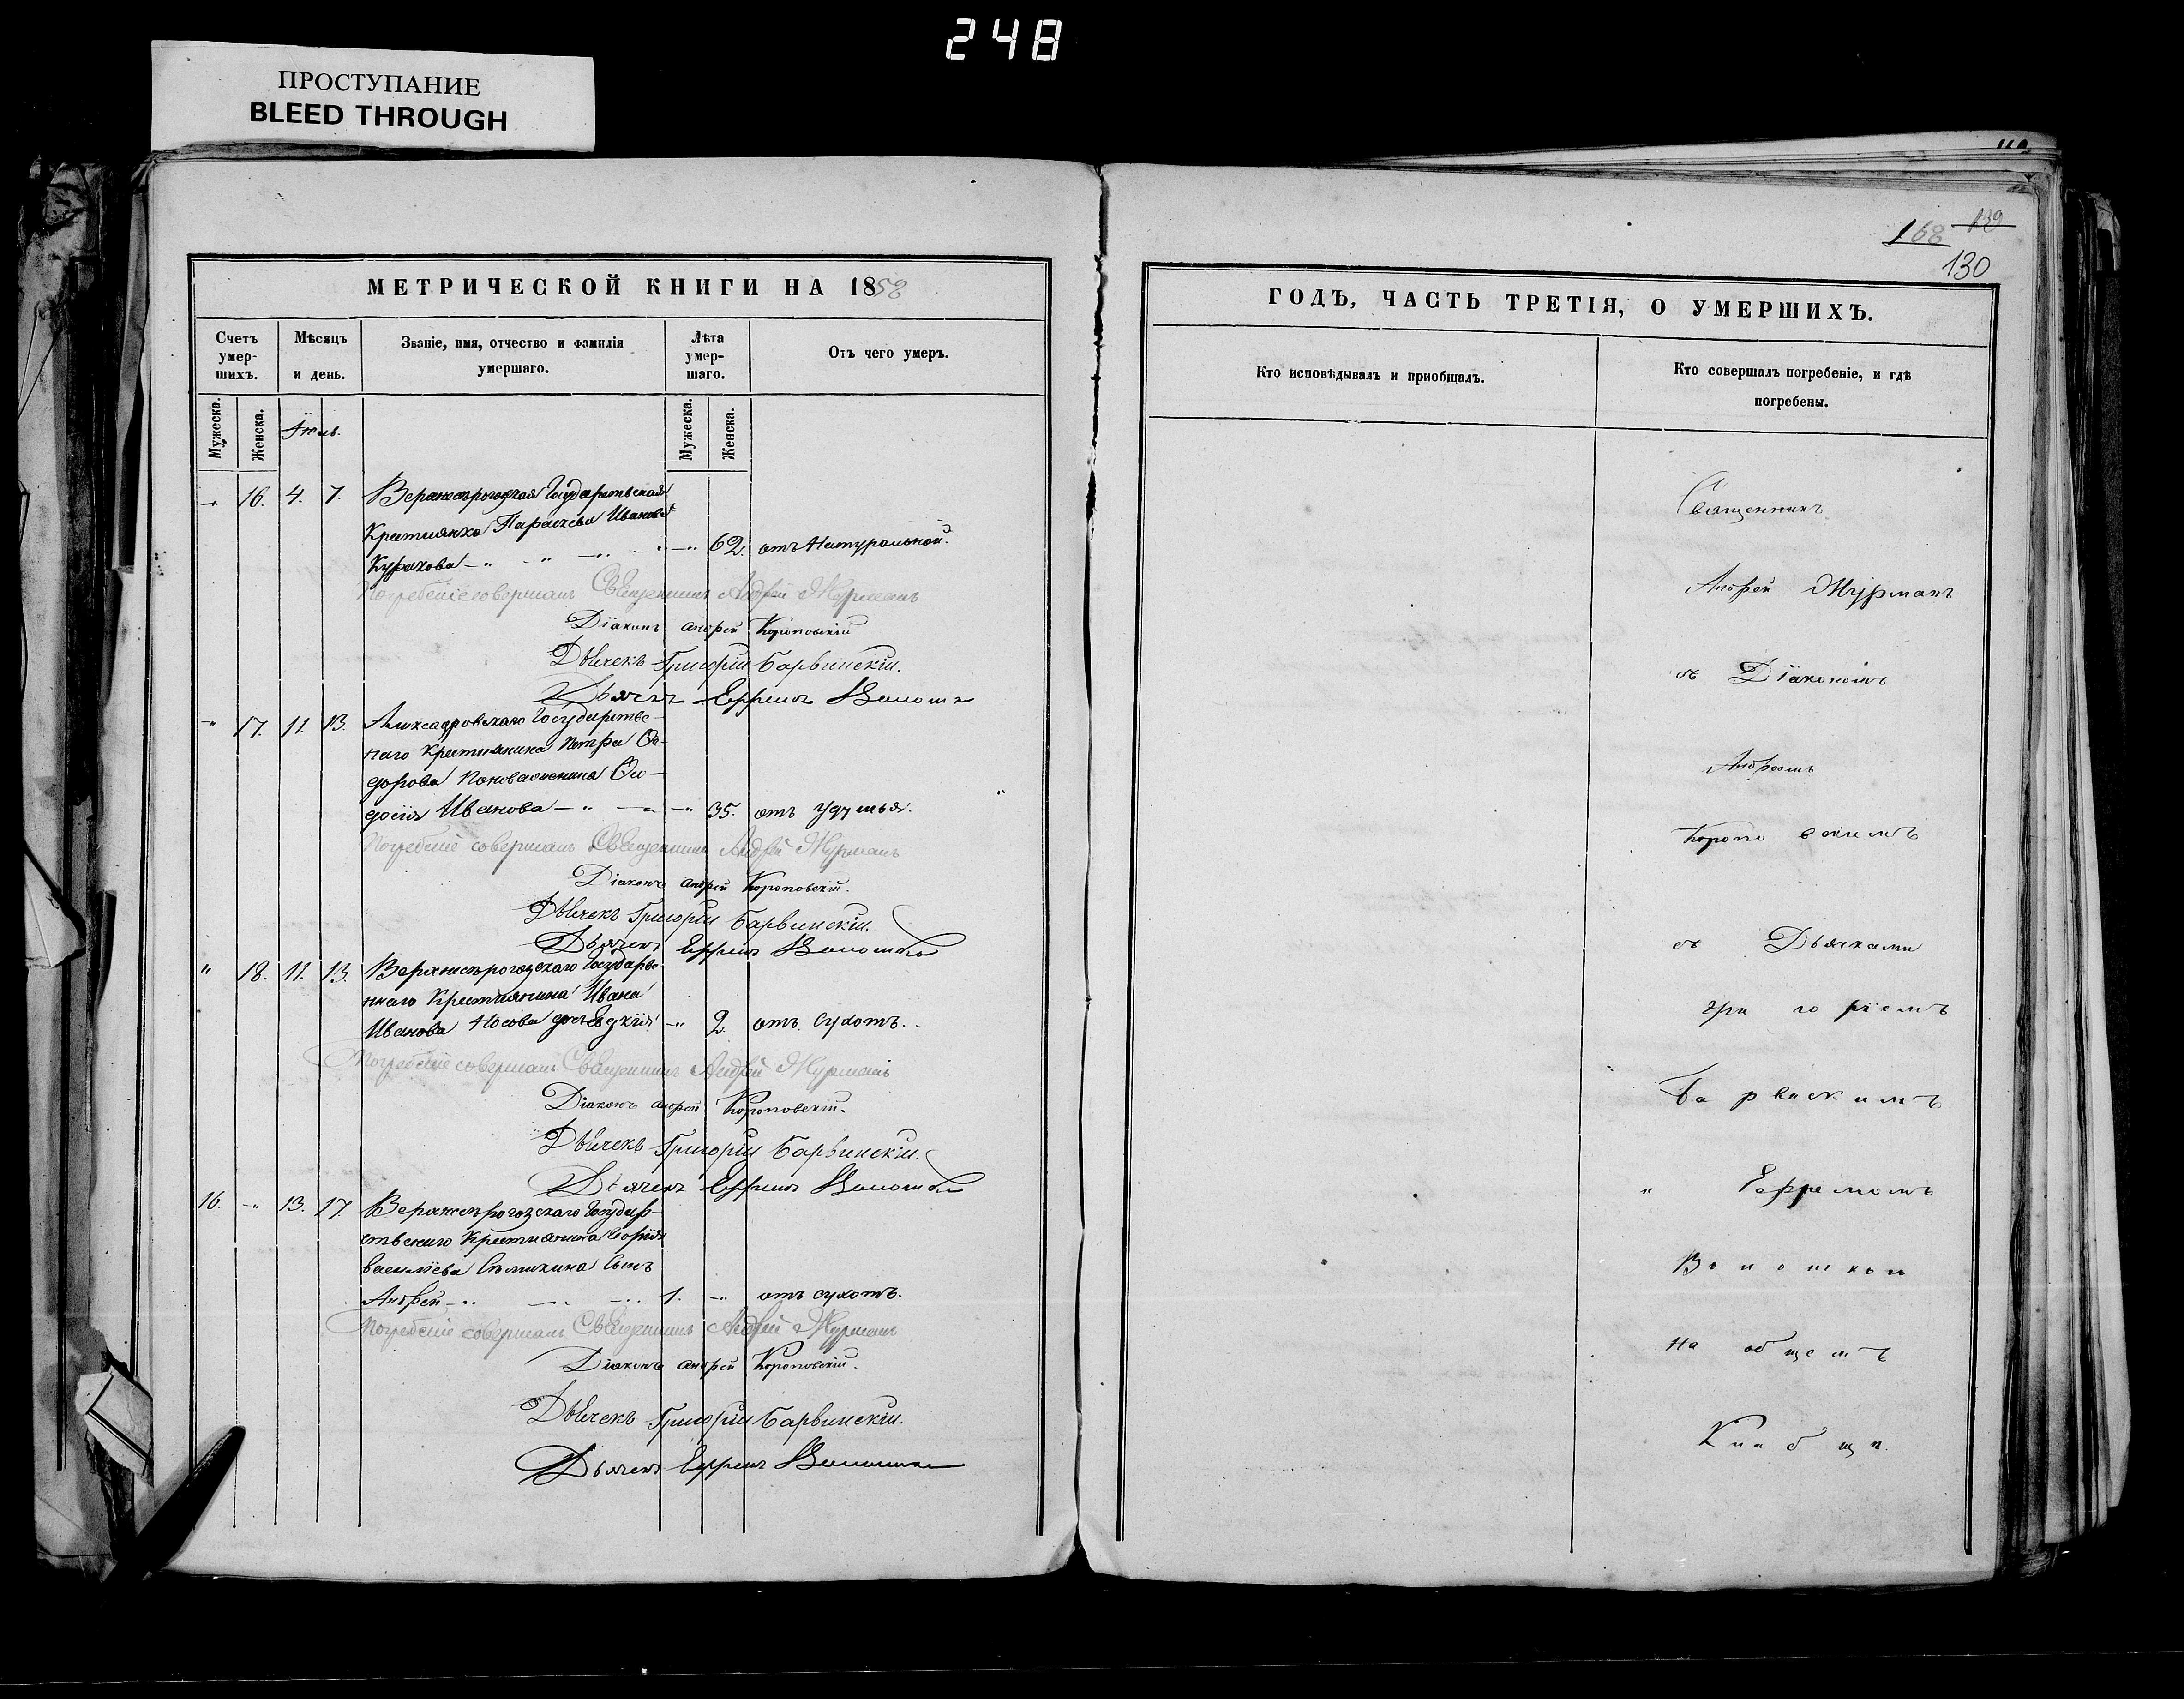 248
ПРОСТУПАНИЕ
BLEED THROUGH
168 139
130
МЕТРИЧЕСКОЙ КНИГИ НА 1858
Счетъ умер-шихъ.
Мѣсяцъ и день.
Званіе, имя, отчество и фамилія умершаго.
Лѣта умер-шаго.
Отъ чего умеръ.
Мужеска.
Женска.
Мужеска.
Женска.
16. 4. 7.
Крестиянка Параскева Иванова
62. отъ Натуральной.
Погребеніе совершалъ Священникъ Андрей Журманъ
Діаконъ Андрей Короповскій
Дьячекъ Григорій Барвинскій.
Дьячекъ Ефремъ Волошко
" 17. 11. 13. Государстве-
наго Крестиянина Петра Ѳе-
дорова Ѳео-
досія Иванова 35. отъ удушья.
Погребеніе совершалъ Священникъ Андрей Журманъ
Діаконъ Андрей Короповскій.
Дьячекъ Григорій Барвинскій.
Дьячекъ Ефремъ Волошко
" 18. 11. 13. Государстве-
ннаго Крестиянина Ивана
Иванова Носова 2. отъ сухотъ.
Погребеніе совершалъ Священникъ Андрей Журманъ
Діаконъ Андрей Короповскій.
Дьячекъ Григорій Барвинскій.
Дьячекъ Ефремъ Волошко
16. 13. 17. Государ-
ственаго Крестиянина
Василіева сынъ
Андрей 1. отъ сухотъ.
Погребеніе совершалъ Священникъ Андрей Журманъ
Діаконъ Андрей Короповскій.
Дьячекъ Григорій Барвинскій.
Дьячекъ Ефремъ Волошко
ГОДЪ, ЧАСТЬ ТРЕТІЯ, О УМЕРШИХЪ.
Кто исповѣдывалъ и пріобщалъ.
Кто совершалъ погребеніе, и гдѣ погребены.
Священникъ
Андрей Журманъ
съ Діакономъ
Андреемъ
Короповскимъ
съ Дьячками
Григоріемъ
Барвискимъ
" Ефремомъ
Волошкою
На общемъ
Кладбщѣ.